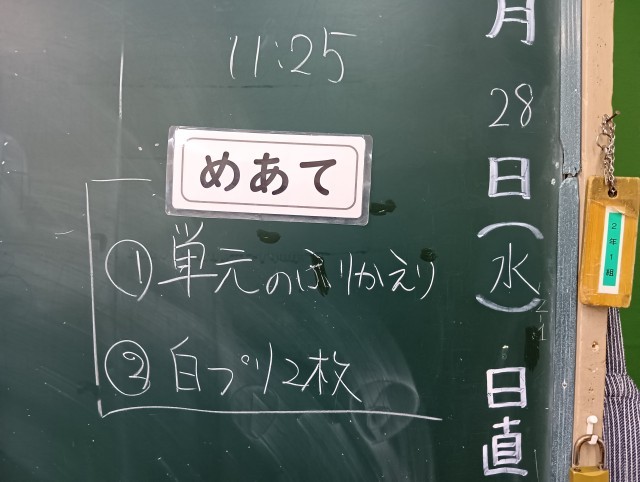 11:25
めあて
①単元のふりかえり
②白プリ2枚
月
28
日
(水)
日直
2年1組